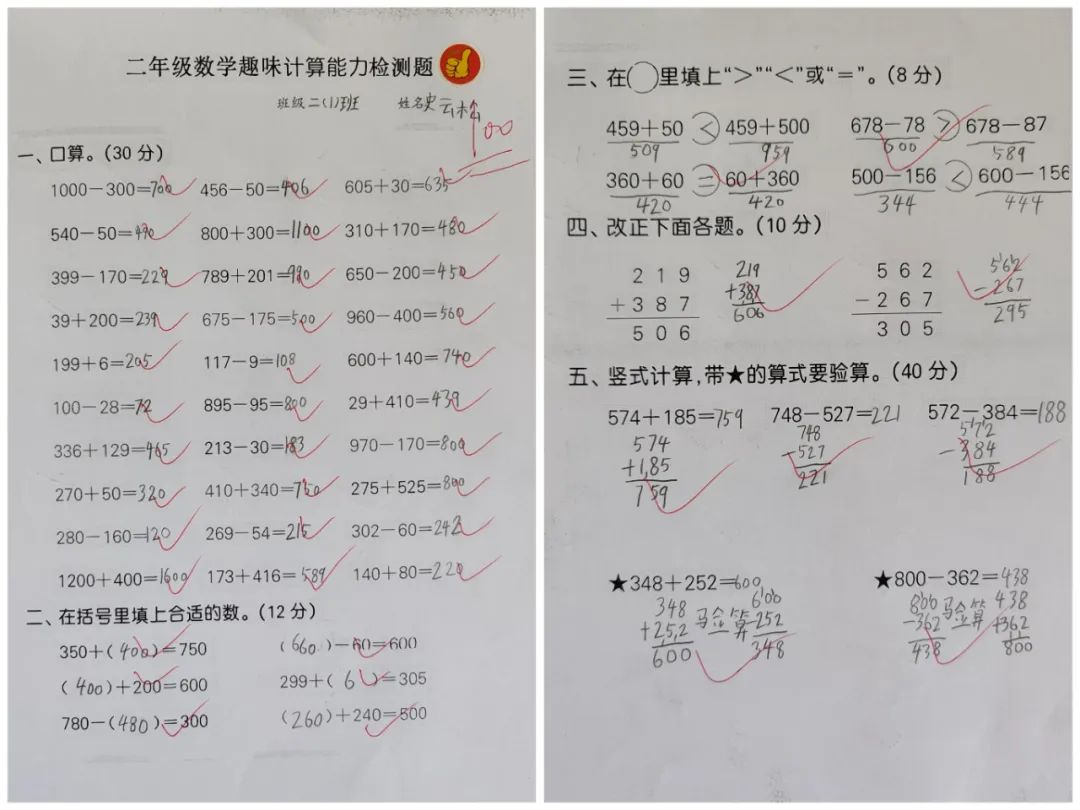 二年级数学趣味计算能力检测题
班级二(1)班 姓名史云
100
一、口算。(30分)
1000－300=700 456－50=406 605＋30=635
540－50=490 800＋300=1100 310＋170=480
399－170=229 789＋201=990 650－200=450
39＋200=239 675－175=500 960－400=560
199＋6=205 117－9=108 600＋140=740
100－28=72 895－95=800 29＋410=439
336＋129=465 213－30=183 970－170=800
270＋50=320 410＋340=750 275＋525=800
280－160=120 269－54=215 302－60=242
1200＋400=1600 173＋416=589 140＋80=220
二、在括号里填上合适的数。(12分)
350＋(400)=750 (660)－60=600
(400)＋200=600 299＋(6)=305
780－(480)=300 (260)＋240=500
三、在○里填上“＞”“＜”或“＝”。(8分)
459＋50＜459＋500 678－78＞678－87
509 959 600 589
360＋60＝60＋360 500－156＜600－156
420 420 344 444
四、改正下面各题。(10分)
219 219 562 562
＋387 +387 －267 -267
506 606 305 295
五、竖式计算,带★的算式要验算。(40分)
574＋185=759 748－527=221 572－384=188
574 748 572
+185 -527 -384
759 221 188
★348＋252=600 ★800－362=438
348 验算 600 800 验算 438
+252 -252 -362 +362
600 348 438 800